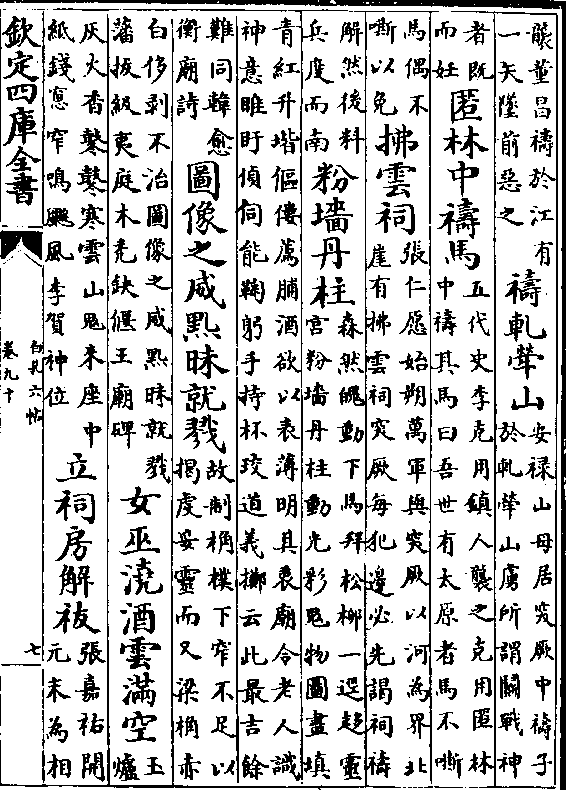 襲董昌禱於江有
一矢墜前惡之
禱軋犖山
安禄山母居突厥中禱子
於軋犖山虜所謂鬬戰神
者既
而妊
匿林中禱馬
五代史李克用鎮人襲之克用匿林
中禱其馬曰吾世有太原者馬不嘶
馬偶不
嘶以免
拂雲祠
張仁愿始朔萬軍與突厥以河為界北
崖有拂雲祠突厥每犯邊必先謁祠禱
解然後料
兵度而南
粉墻丹柱
森然魄動下馬拜松桞一逕趍靈
宮粉墻丹柱動光彩鬼物圖畫填
青紅升堦傴僂薦脯酒欲以表薄明其衷廟令老人識
神意睢盱偵伺能鞠躬手持杯珓道義擲云此最吉餘
難同韓愈
衡廟詩
圖像之威黙昧就戮
故制桷樸下窄不足以
揭虔妥靈而又梁桷赤
白侈剥不治圖像之威黙昧就戮
藩拔級夷庭木秃缺偃王廟碑
女巫澆酒雲滿空
玉
爐
灰火香鼕鼕寒雲山鬼来座中
紙錢窸窣鳴飈風李賀神位
立祠房解祓
張嘉祐開
元末為相
欽定四庫全書
白孔六帖
卷九十
七